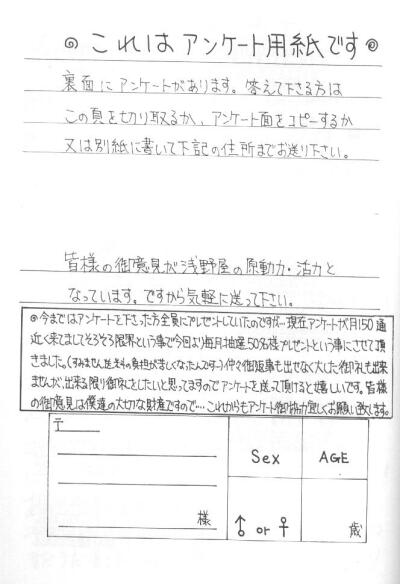 これはアンケート用紙です
裏面にアンケートがあります。答えて下さる方は
この頁を切り取るか、アンケート面をコピーするか
又は別紙に書いて下記の住所までお送り下さい。
皆様の御意見が浅野屋の原動力・活力と
なっています。ですから気軽に送って下さい。
◎今まではアンケートを下さった方全員にプレゼントしていたのですが…現在アンケートが月150通
近く来てましてそろそろ限界という事で今回より毎月抽選50名様プレゼントという事にさせて頂
きました。(すみません送料の負担がきしくなったんです〜)仲々御返事も出せなく大した御礼も出来
ませんが、出来る限り御礼をしたいと思ってますのでアンケートを送って頂けると嬉しいです。皆様
の御意見は僕達の大切な財産ですので‥‥これからもアンケート御協力宜しくお願い致します。
〒
Sex
AGE
様
♂ or ♀
歳